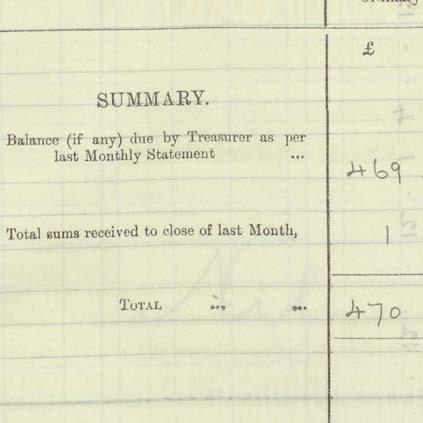 £
SUMMARY.
Balance (if any) due by Treasurer as per
last Monthly Statement ... 469
Total sums received to close of last Month, 1
TOTAL ... ... 470